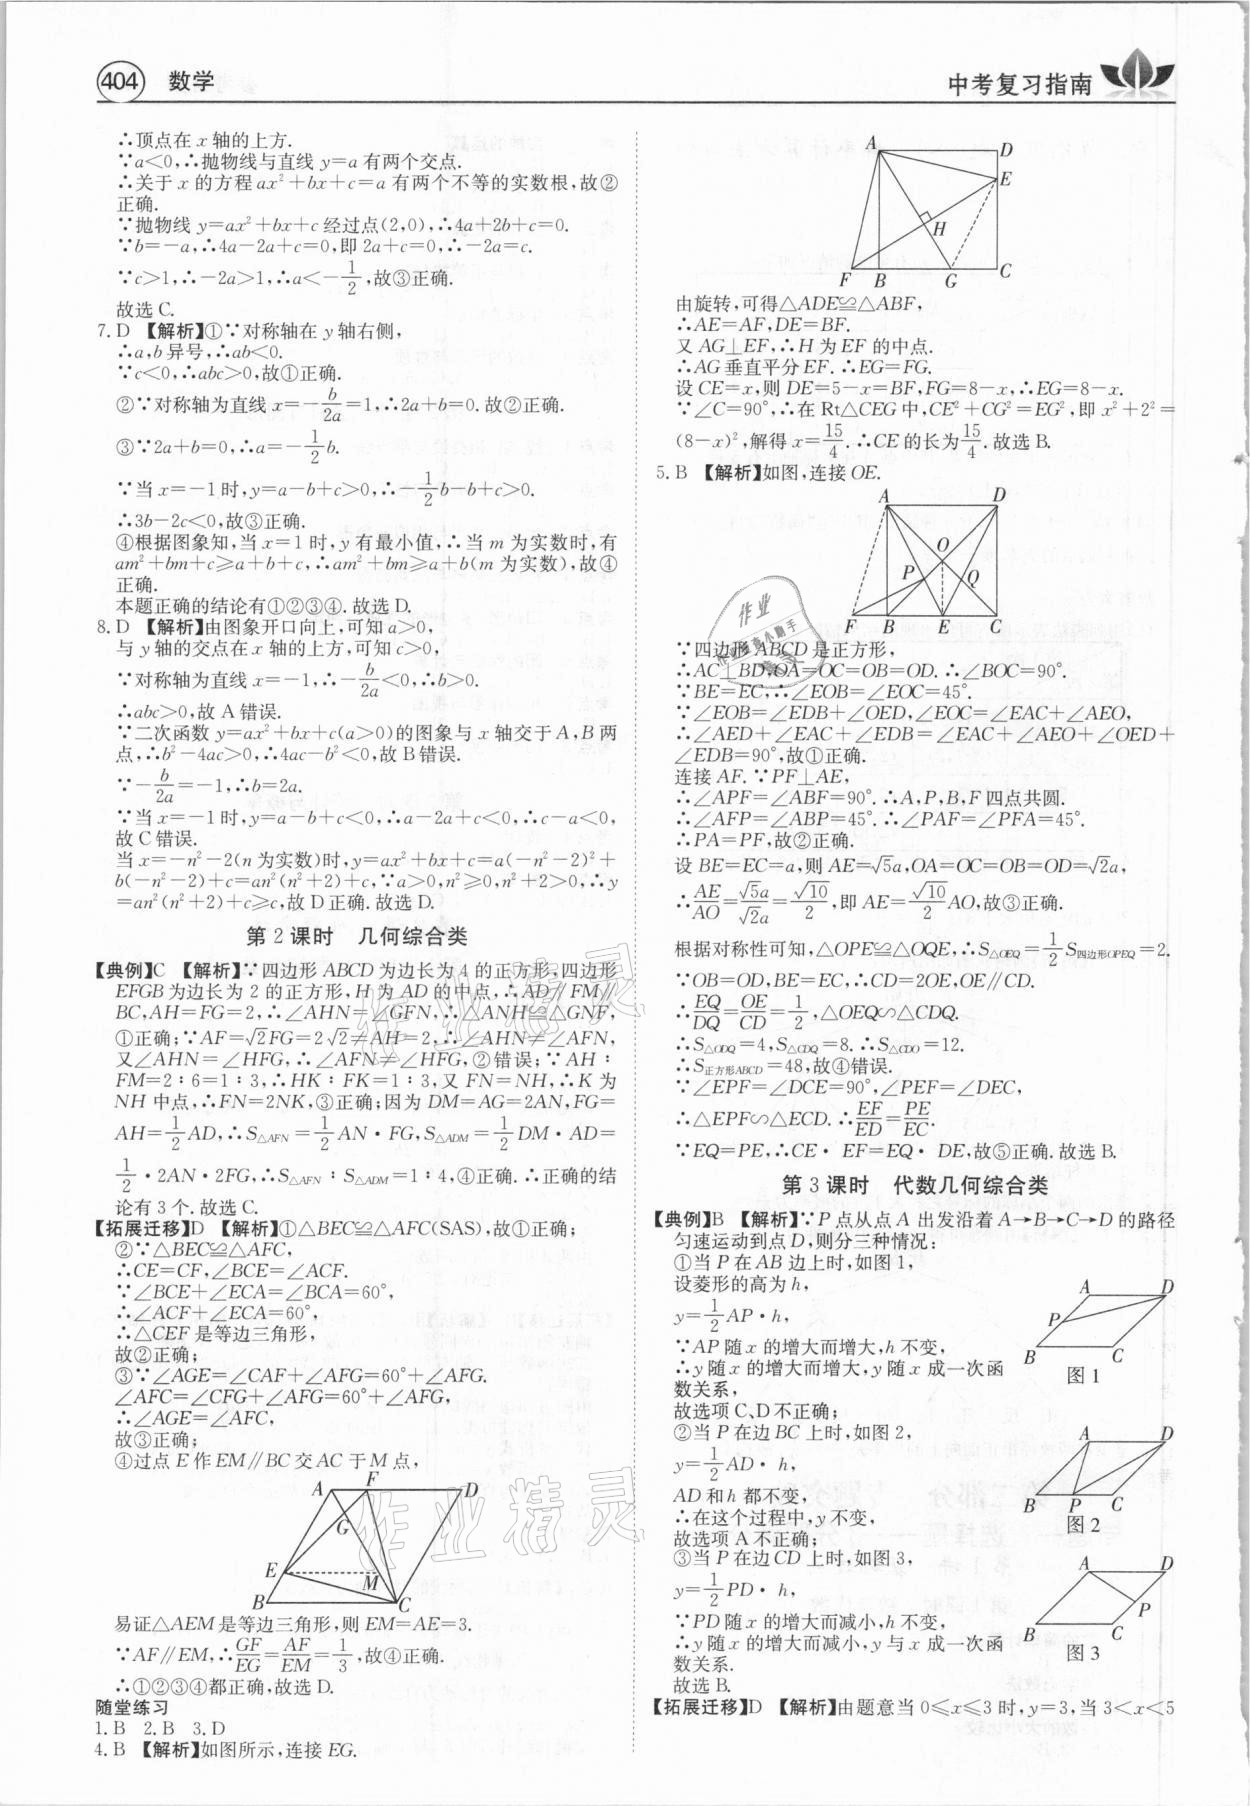 404 数学
中考复习指南
∴顶点在 x 轴的上方.
∵a<0,∴抛物线与直线 y=a 有两个交点.
∴关于 x 的方程 ax²+bx+c=a 有两个不等的实数根,故②
正确.
∵抛物线 y=ax²+bx+c 经过点(2,0),∴4a+2b+c=0.
∵b=-a,∴4a-2a+c=0,即 2a+c=0,∴-2a=c.
∵c>1,∴-2a>1,∴a<-1/2,故③正确.
故选 C.
7. D 【解析】①∵对称轴在 y 轴右侧,
∴a,b 异号,∴ab<0.
∵c<0,∴abc>0,故①正确.
②∵对称轴为直线 x=-b/2a=1,∴2a+b=0.故②正确.
③∵2a+b=0,∴a=-1/2b.
∵当 x=-1 时,y=a-b+c>0,∴-1/2b-b+c>0.
∴3b-2c<0,故③正确.
④根据图象知,当 x=1 时,y 有最小值,∴当 m 为实数时,有
am²+bm+c⩾a+b+c,∴am²+bm⩾a+b(m 为实数),故④
正确.
本题正确的结论有①②③④.故选 D.
8. D 【解析】由图象开口向上,可知 a>0,
与 y 轴的交点在 x 轴的上方,可知 c>0,
∵对称轴为直线 x=-1,∴-b/2a<0,∴b>0.
∴abc>0,故 A 错误.
∵二次函数 y=ax²+bx+c(a>0)的图象与 x 轴交于 A,B 两
点,∴b²-4ac>0,∴4ac-b²<0,故 B 错误.
∵-b/2a=-1,∴b=2a.
∵当 x=-1 时,y=a-b+c<0,∴a-2a+c<0,∴c-a<0,
故 C 错误.
当 x=-n²-2(n 为实数)时,y=ax²+bx+c=a(-n²-2)²+
b(-n²-2)+c=an²(n²+2)+c,∵a>0,n²⩾0,n²+2>0,∴y
=an²(n²+2)+c⩾c,故 D 正确.故选 D.
第 2 课时 几何综合类
【典例】C 【解析】∵四边形 ABCD 为边长为 4 的正方形,四边形
EFGB 为边长为 2 的正方形,H 为 AD 的中点,∴AD∥FM∥
BC,AH=FG=2,∴∠AHN=∠GFN,∴△ANH≌△GNF,
①正确;∵AF=√2FG=2√2≠AH=2,∴∠AHN≠∠AFN,
又∠AHN=∠HFG,∴∠AFN≠∠HFG,②错误;∵AH∶
FM=2∶6=1∶3,∴HK∶FK=1∶3,又 FN=NH,∴K 为
NH 中点,∴FN=2NK,③正确;因为 DM=AG=2AN,FG=
AH=1/2AD,∴S△AFN=1/2AN·FG,S△ADM=1/2DM·AD=
1/2·2AN·2FG,∴S△AFN∶S△ADM=1∶4,④正确.∴正确的结
论有 3 个.故选 C.
【拓展迁移】D 【解析】①△BEC≌△AFC(SAS),故①正确;
②∵△BEC≌△AFC,
∴CE=CF,∠BCE=∠ACF.
∵∠BCE+∠ECA=∠BCA=60°,
∴∠ACF+∠ECA=60°,
∴△CEF 是等边三角形,
故②正确;
③∵∠AGE=∠CAF+∠AFG=60°+∠AFG.
∠AFC=∠CFG+∠AFG=60°+∠AFG,
∴∠AGE=∠AFC,
故③正确;
④过点 E 作 EM∥BC 交 AC 于 M 点,
A F D
G
E M
B C
易证△AEM 是等边三角形,则 EM=AE=3.
∵AF∥EM,∴GF/EG=AF/EM=1/3,故④正确.
∴①②③④都正确,故选 D.
随堂练习
1. B 2. B 3. D
4. B 【解析】如图所示,连接 EG.
A D
E
H
F B G C
由旋转,可得△ADE≌△ABF,
∴AE=AF,DE=BF.
又 AG⊥EF,∴H 为 EF 的中点.
∴AG 垂直平分 EF.∴EG=FG.
设 CE=x,则 DE=5-x=BF,FG=8-x,∴EG=8-x.
∵∠C=90°,∴在 Rt△CEG 中,CE²+CG²=EG²,即 x²+2²=
(8-x)²,解得 x=15/4.∴CE 的长为15/4.故选 B.
5. B 【解析】如图,连接 OE.
A D
O
P Q
F B E C
∵四边形 ABCD 是正方形,
∴AC⊥BD,OA=OC=OB=OD.∴∠BOC=90°.
∵BE=EC,∴∠EOB=∠EOC=45°.
∵∠EOB=∠EDB+∠OED,∠EOC=∠EAC+∠AEO,
∴∠AED+∠EAC+∠EDB=∠EAC+∠AEO+∠OED+
∠EDB=90°,故①正确.
连接 AF.∵PF⊥AE,
∴∠APF=∠ABF=90°.∴A,P,B,F 四点共圆.
∴∠AFP=∠ABP=45°.∴∠PAF=∠PFA=45°.
∴PA=PF,故②正确.
设 BE=EC=a,则 AE=√5a,OA=OC=OB=OD=√2a,
∴AE/AO=√5a/√2a=√10/2,即 AE=√10/2AO,故③正确.
根据对称性可知,△OPE≌△OQE,∴S△OEQ=1/2S四边形OPEQ=2.
∵OB=OD,BE=EC,∴CD=2OE,OE∥CD.
∴EQ/DQ=OE/CD=1/2,△OEQ∽△CDQ.
∴S△ODQ=4,S△CDQ=8.∴S△CDO=12.
∴S正方形ABCD=48,故④错误.
∵∠EPF=∠DCE=90°,∠PEF=∠DEC,
∴△EPF∽△ECD.∴EF/ED=PE/EC.
∵EQ=PE,∴CE·EF=EQ·DE,故⑤正确.故选 B.
第 3 课时 代数几何综合类
【典例】B 【解析】∵P 点从点 A 出发沿着 A→B→C→D 的路径
匀速运动到点 D,则分三种情况:
①当 P 在 AB 边上时,如图 1,
设菱形的高为 h,
y=1/2AP·h,
∵AP 随 x 的增大而增大,h 不变,
∴y 随 x 的增大而增大,y 随 x 成一次函
数关系,
故选项 C、D 不正确;
A D
P
B C
图 1
②当 P 在边 BC 上时,如图 2,
y=1/2AD·h,
AD 和 h 都不变,
∴在这个过程中,y 不变,
故选项 A 不正确;
A D
B P C
图 2
③当 P 在边 CD 上时,如图 3,
y=1/2PD·h,
∵PD 随 x 的增大而减小,h 不变,
∴y 随 x 的增大而减小,y 与 x 成一次函
数关系.
故选 B.
A D
P
B C
图 3
【拓展迁移】D 【解析】由题意当 0⩽x⩽3 时,y=3,当 3<x<5
作业精灵
作业精灵
作业